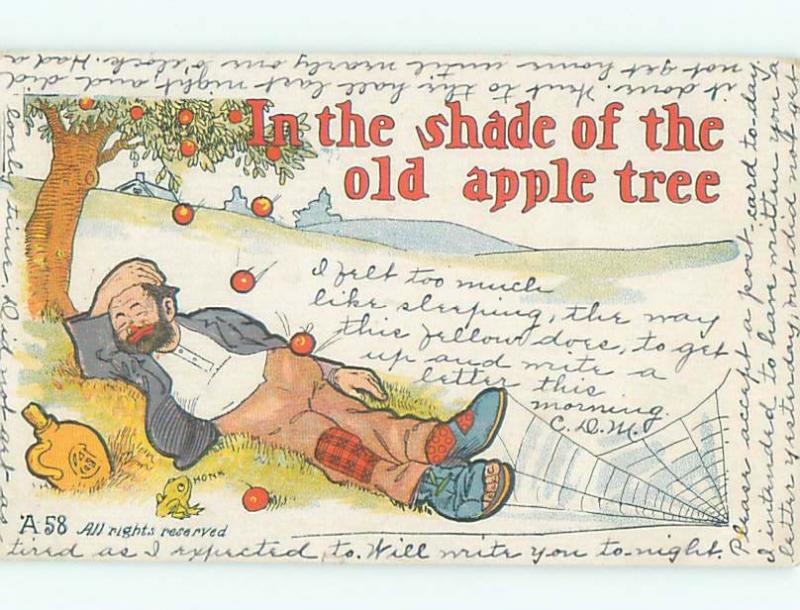 In the shade of the
old apple tree
I felt too much
like sleeping, the way
this fellow does, to get
up and write a
letter this
morning.
C. D. M.
HONK
A 58 All rights reserved
Please accept a post-card to-day
I intended to have written you a
letter yesterday, but did not get
it done. Went to this hall last night, and did
not get home until nearly one o'clock. Had a
lovely time. Did not get as
tired as I expected to. Will write you to-night.